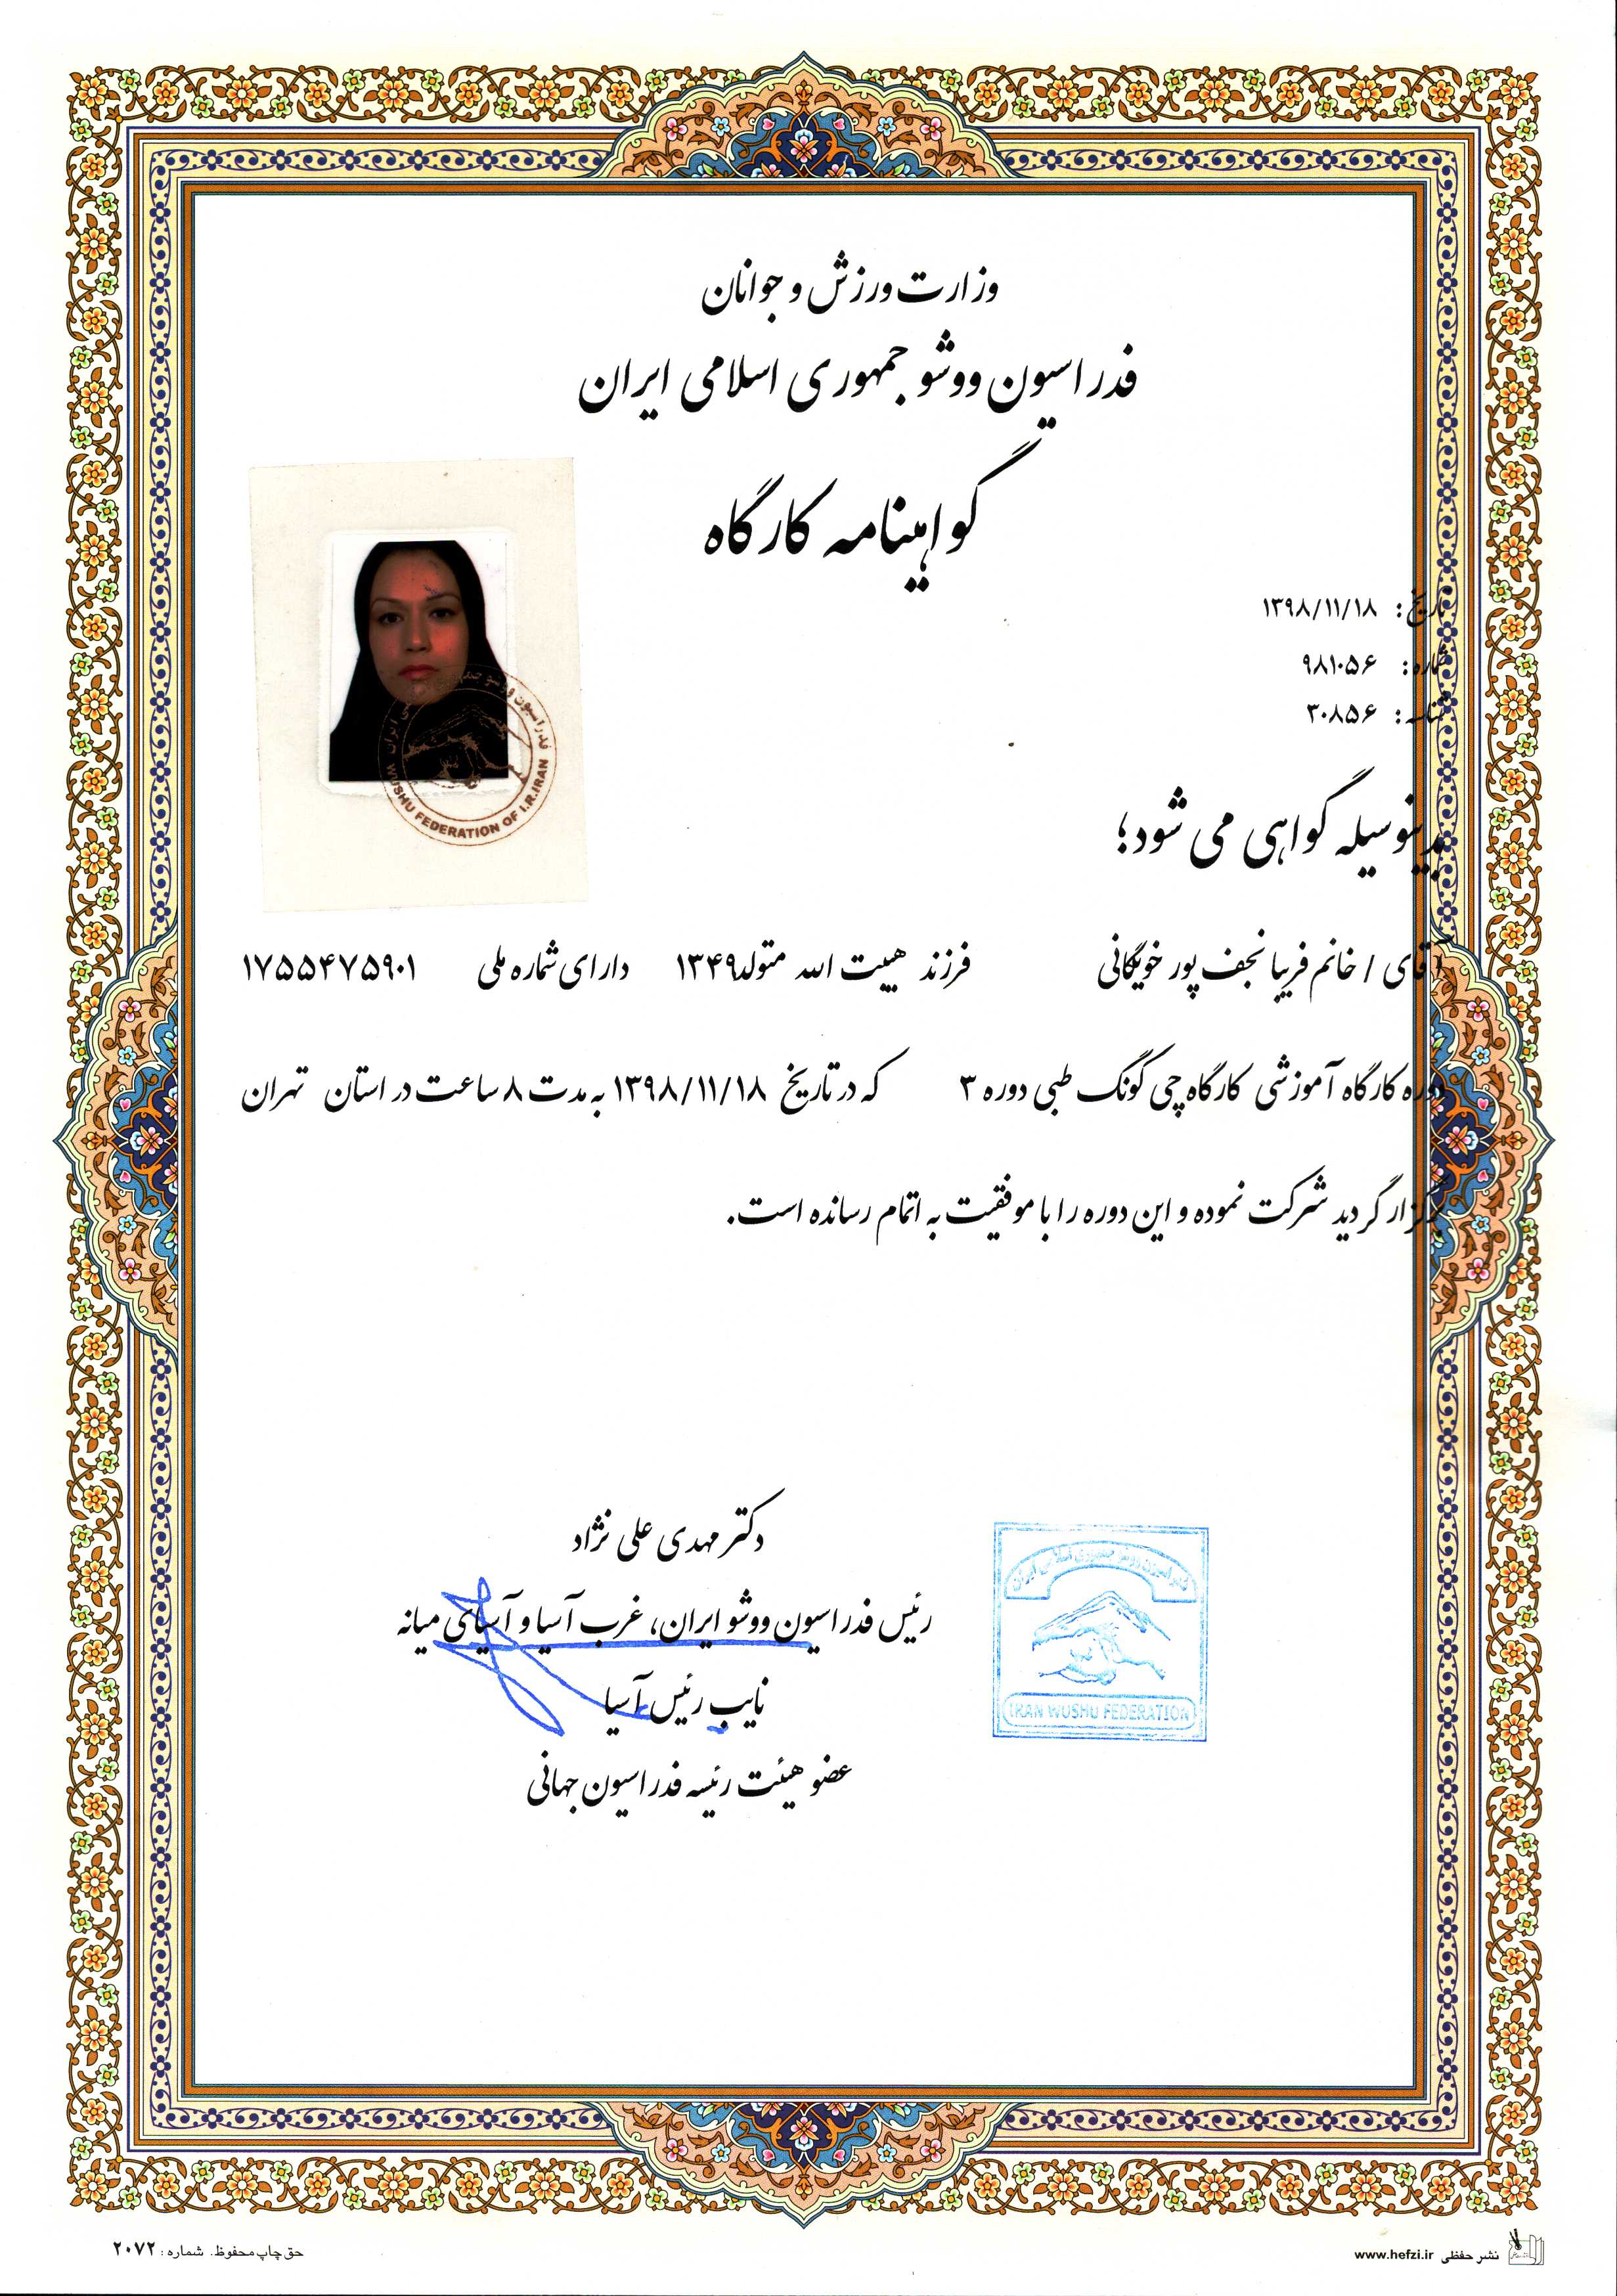 وزارت ورزش و جوانان
فدراسیون ووشو جمهوری اسلامی ایران
گواهینامه کارگاه
تاریخ: ۱۳۹۸/۱۱/۱۸
شماره: ۹۸۱۰۵۶
شناسه: ۳۰۸۵۶
فدراسیون ووشو جمهوری اسلامی ایران
WUSHU FEDERATION OF I.R.IRAN
بدینوسیله گواهی می شود؛
آقای / خانم فریبا نجف پور خویگانی فرزند هیبت الله متولد ۱۳۴۹ دارای شماره ملی ۱۷۵۵۴۷۵۹۰۱
دوره کارگاه آموزشی کارگاه چی گونگ طبی دوره ۳ که در تاریخ ۱۳۹۸/۱۱/۱۸ به مدت ۸ ساعت در استان تهران
برگزار گردید شرکت نموده و این دوره را با موفقیت به اتمام رسانده است.
دکتر مهدی علی نژاد
رئیس فدراسیون ووشو ایران، غرب آسیا و آسیای میانه
نایب رئیس آسیا
عضو هیئت رئیسه فدراسیون جهانی
فدراسیون ووشو جمهوری اسلامی ایران
IRAN WUSHU FEDERATION
نشر حفظی www.hefzi.ir
حق چاپ محفوظ. شماره: ۲۰۷۲